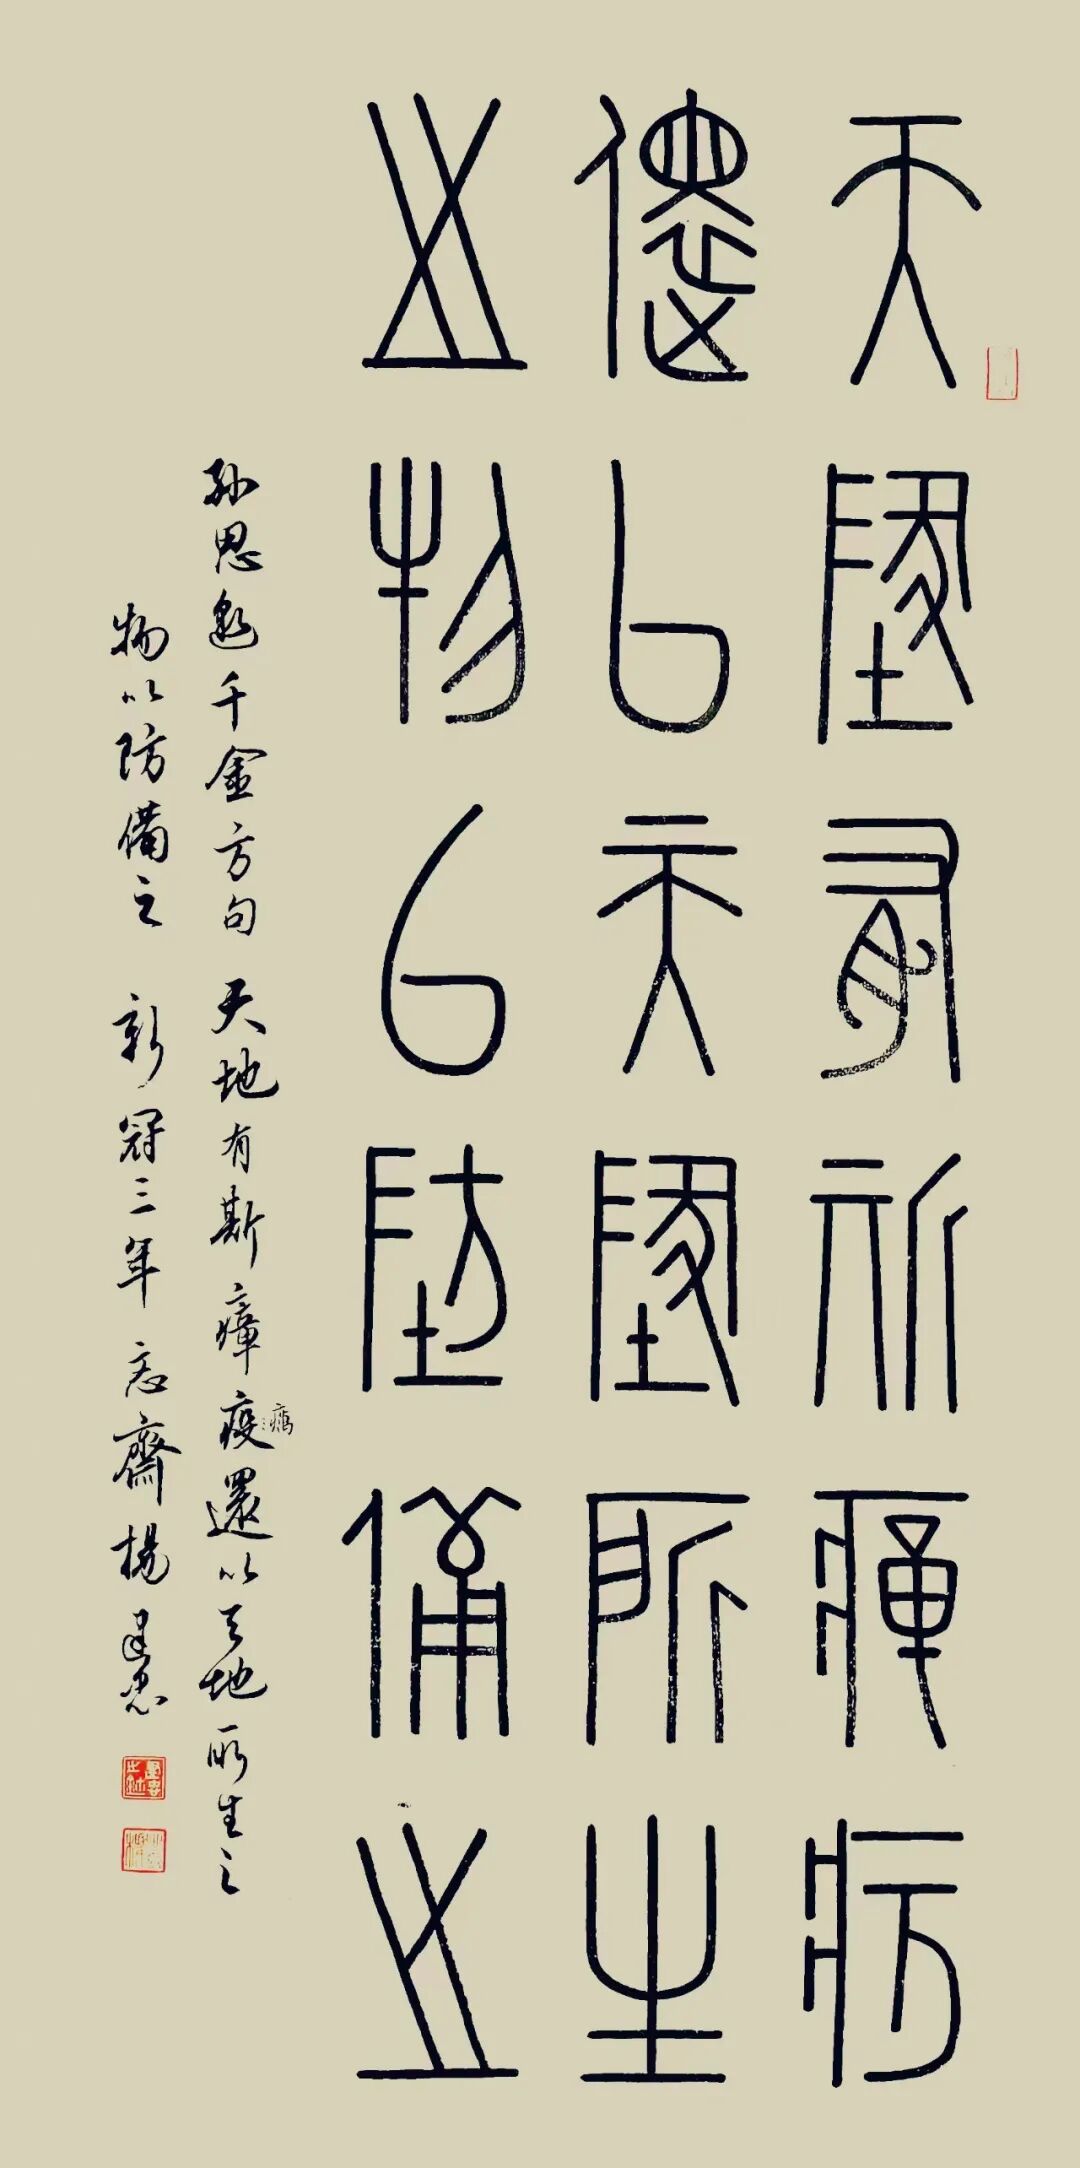 天地有斯瘴疠
還以天地所生
之物以防備之
孫思邈千金方句 天地有斯瘴疫還以天地所生之
疠
物以防備之 新冠三年 忘齋楊建忠